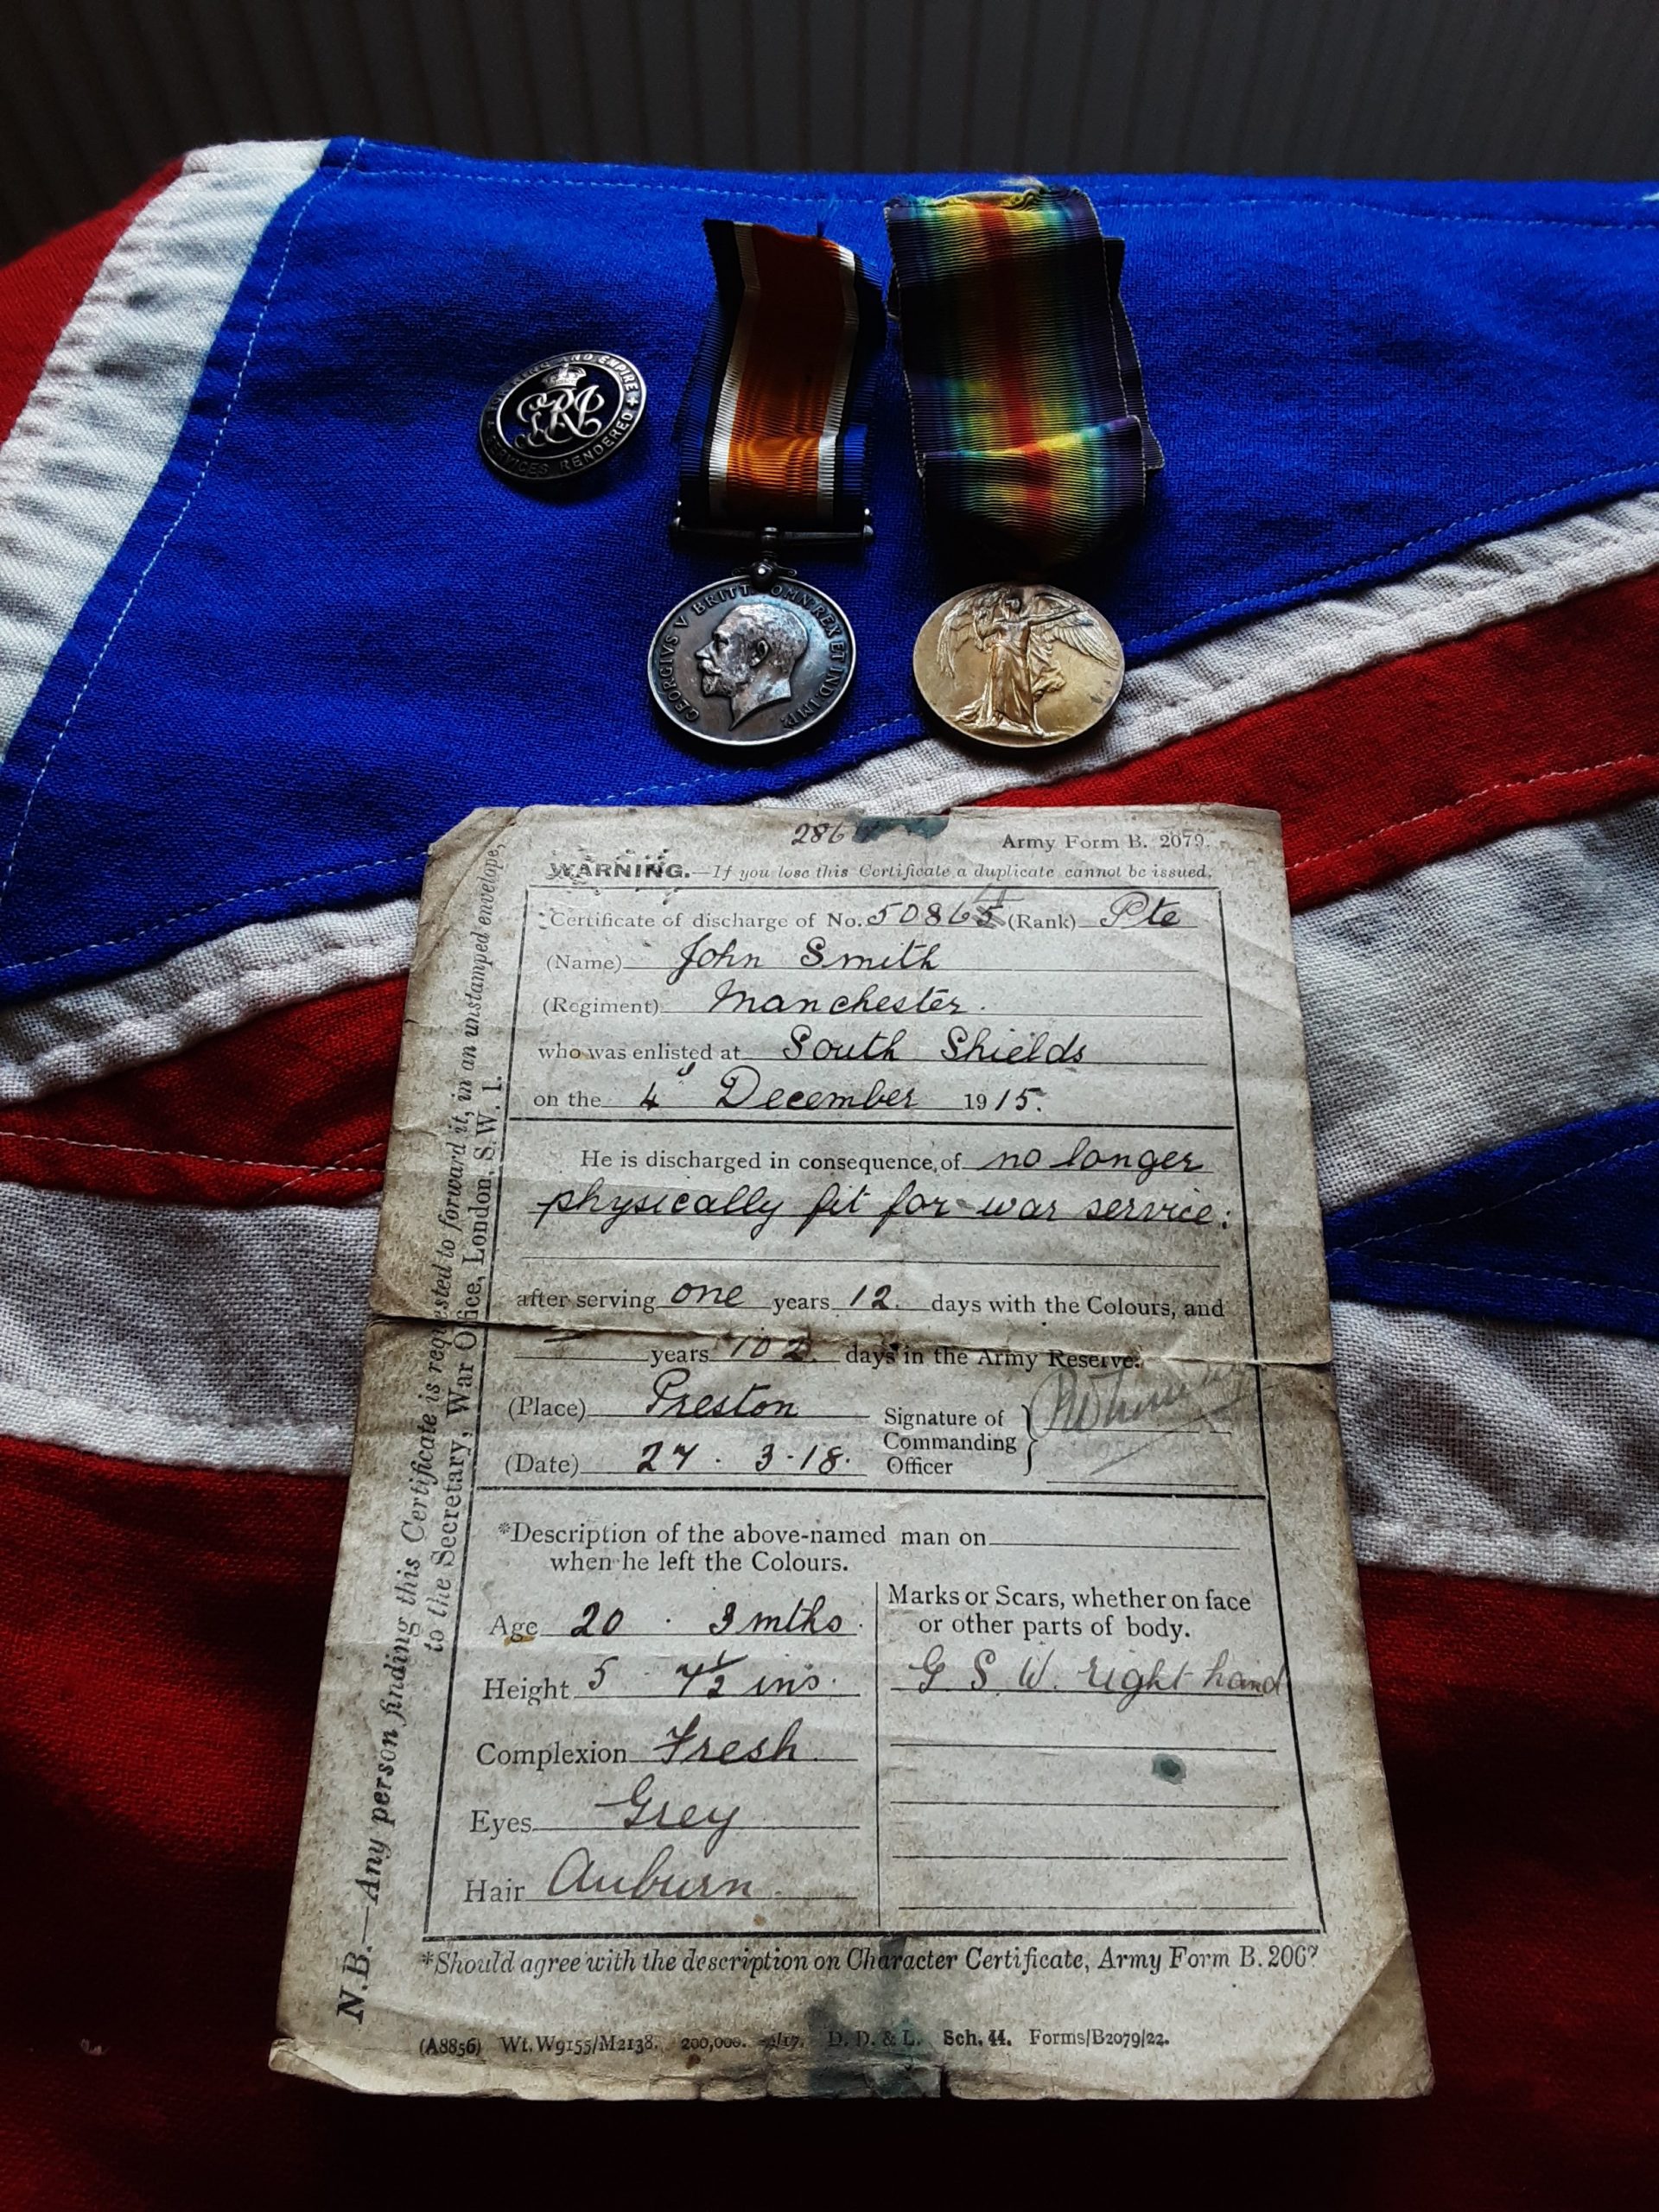 FOR KING AND EMPIRE + SERVICES RENDERED +
GRI
GEORGIVS V BRITT: OMN: REX ET IND: IMP:
286
Army Form B. 2079.
WARNING.—If you lose this Certificate a duplicate cannot be issued.
Certificate of discharge of No. 50865 (Rank) Pte
(Name) John Smith
(Regiment) Manchester.
who was enlisted at South Shields
on the 4 December 1915.
He is discharged in consequence of no longer
physically fit for war service.
after serving one years 12 days with the Colours, and
— years 102 days in the Army Reserve.
(Place) Preston
(Date) 27. 3.18.
Signature of
Commanding
Officer
*Description of the above-named man on
when he left the Colours.
Age 20 . 3 mths.
Height 5 7½ ins.
Complexion Fresh.
Eyes Grey
Hair Auburn.
Marks or Scars, whether on face
or other parts of body.
G S W. right hand
*Should agree with the description on Character Certificate, Army Form B. 2067
(A8856) Wt. W9155/M2138. 200,000. /17. D. D. & L. Sch. 44. Forms/B2079/22.
N.B.—Any person finding this Certificate is requested to forward it, in an unstamped envelope,
to the Secretary, War Office, London, S.W. 1.